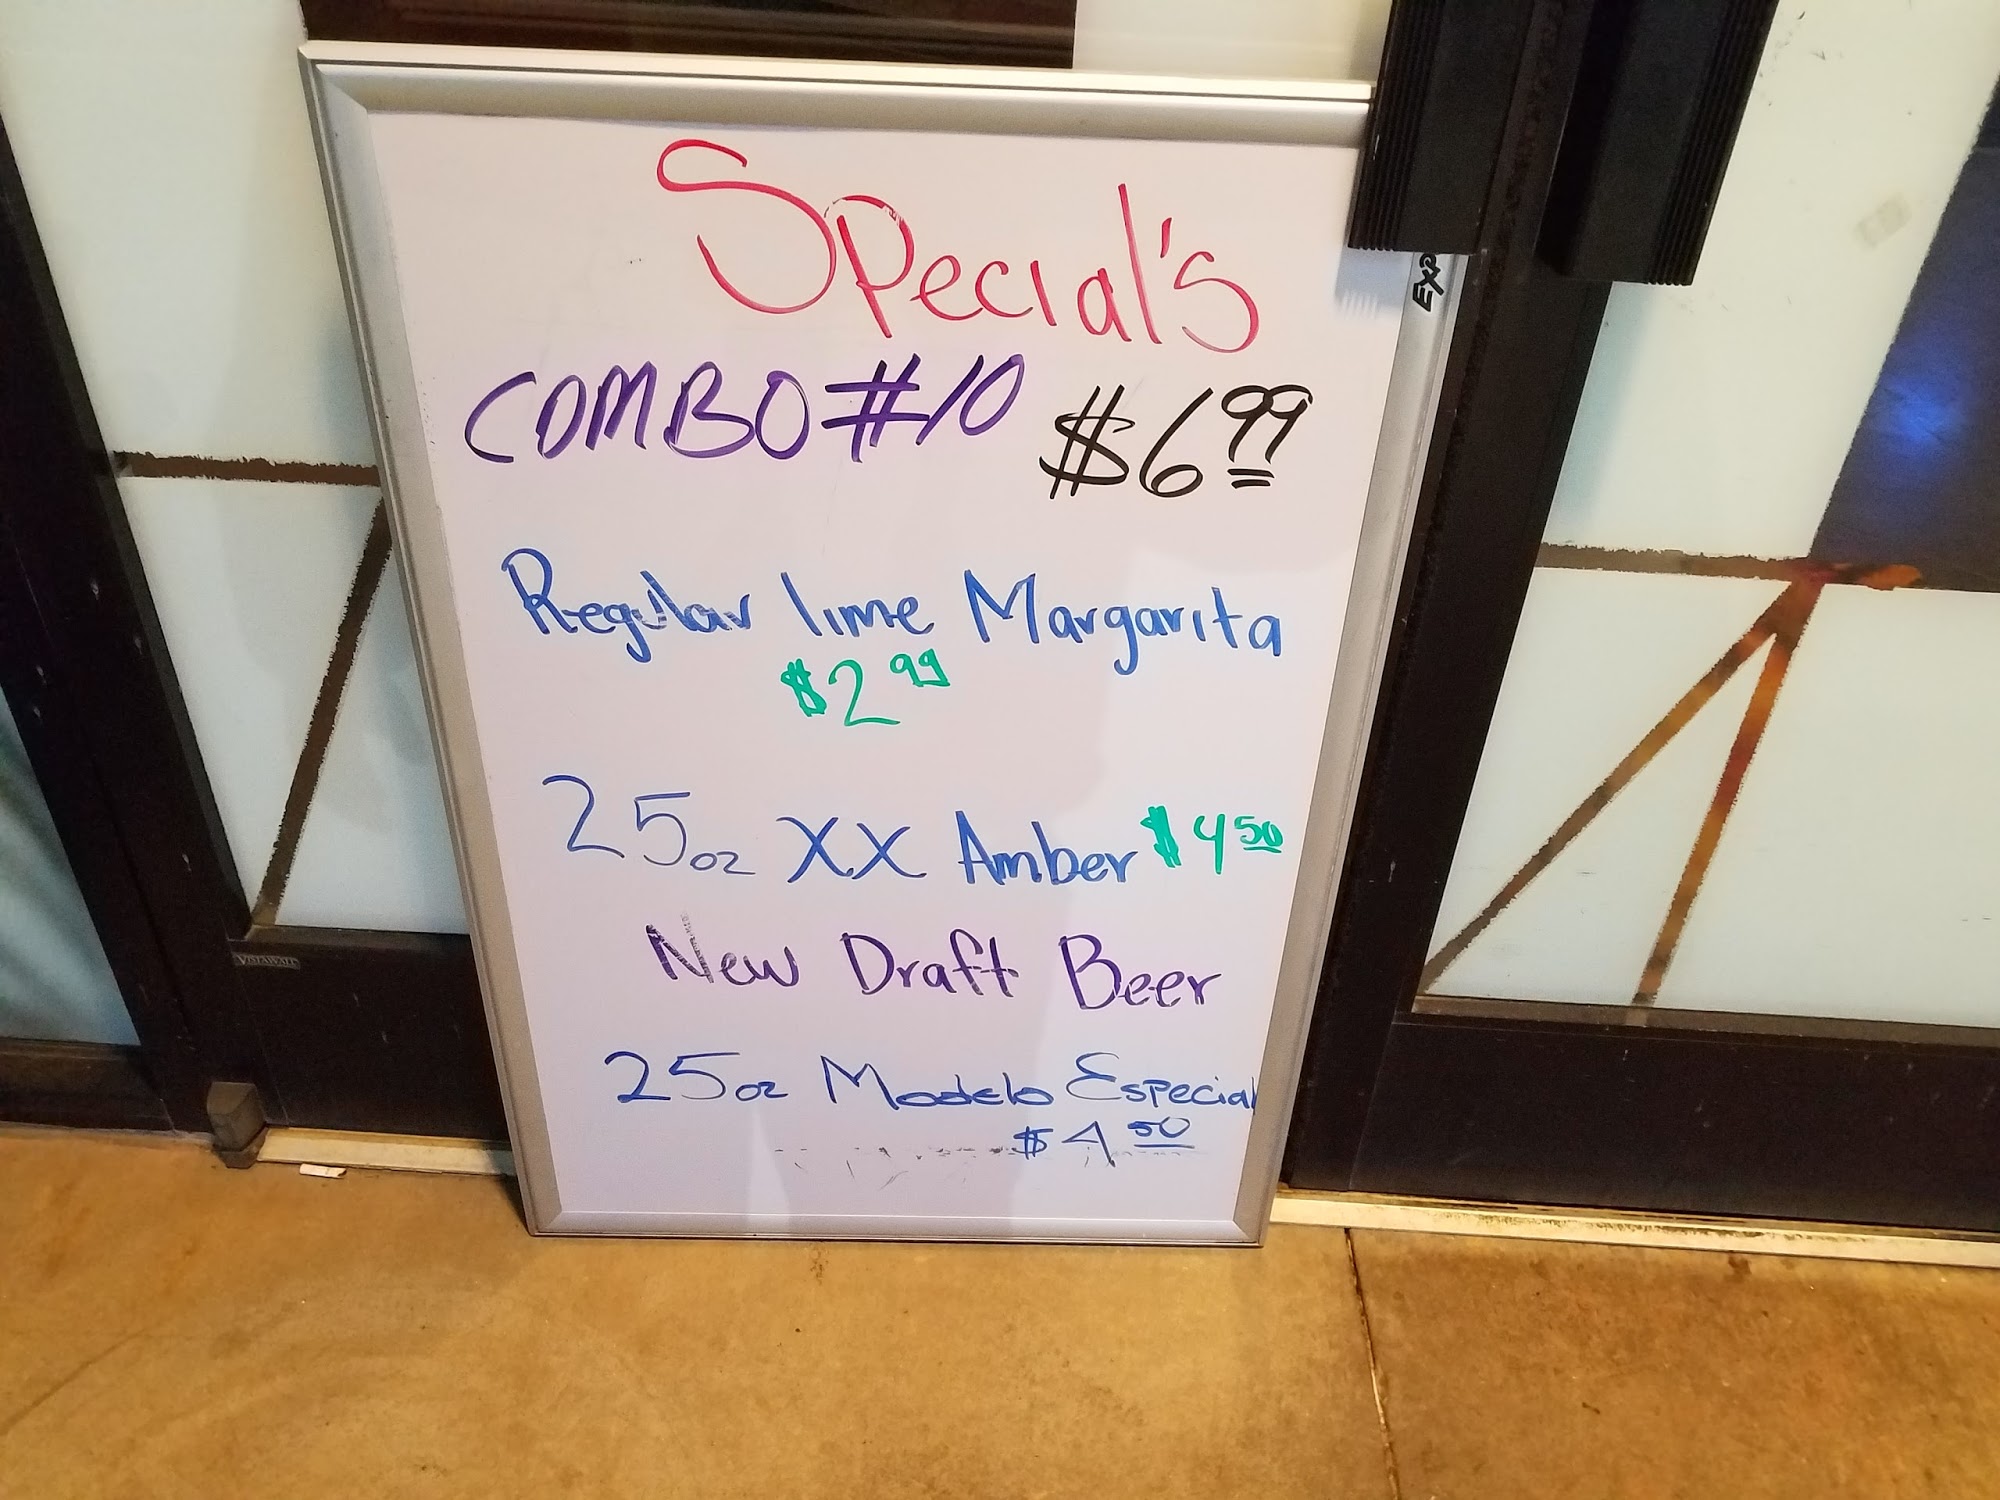 Special's
COMBO #10 $6.99
Regular lime Margarita
$2.99
25oz XX Amber $4.50
New Draft Beer
25oz Modelo Especial
$4.50
VISTAWALL